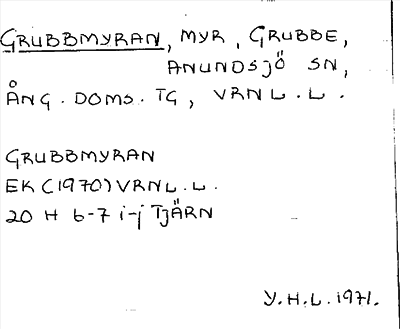 GRUBBMYRAN, MYR, GRUBBE,
ANUNDSJÖ SN,
ÅNG. DOMS. TG, VRNL.L.
GRUBBMYRAN
EK(1970)VRNL.L.
20 H 6-7 i-j TJÄRN
Y.H.L.1971.